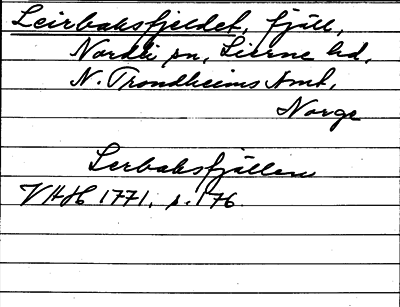 Leirbaksfjeldet, fjäll,
Nordli sn, Lierne hd,
N. Trondheims Amt,
Norge
Lerbaksfjällen
VHAH 1771, s. 176.